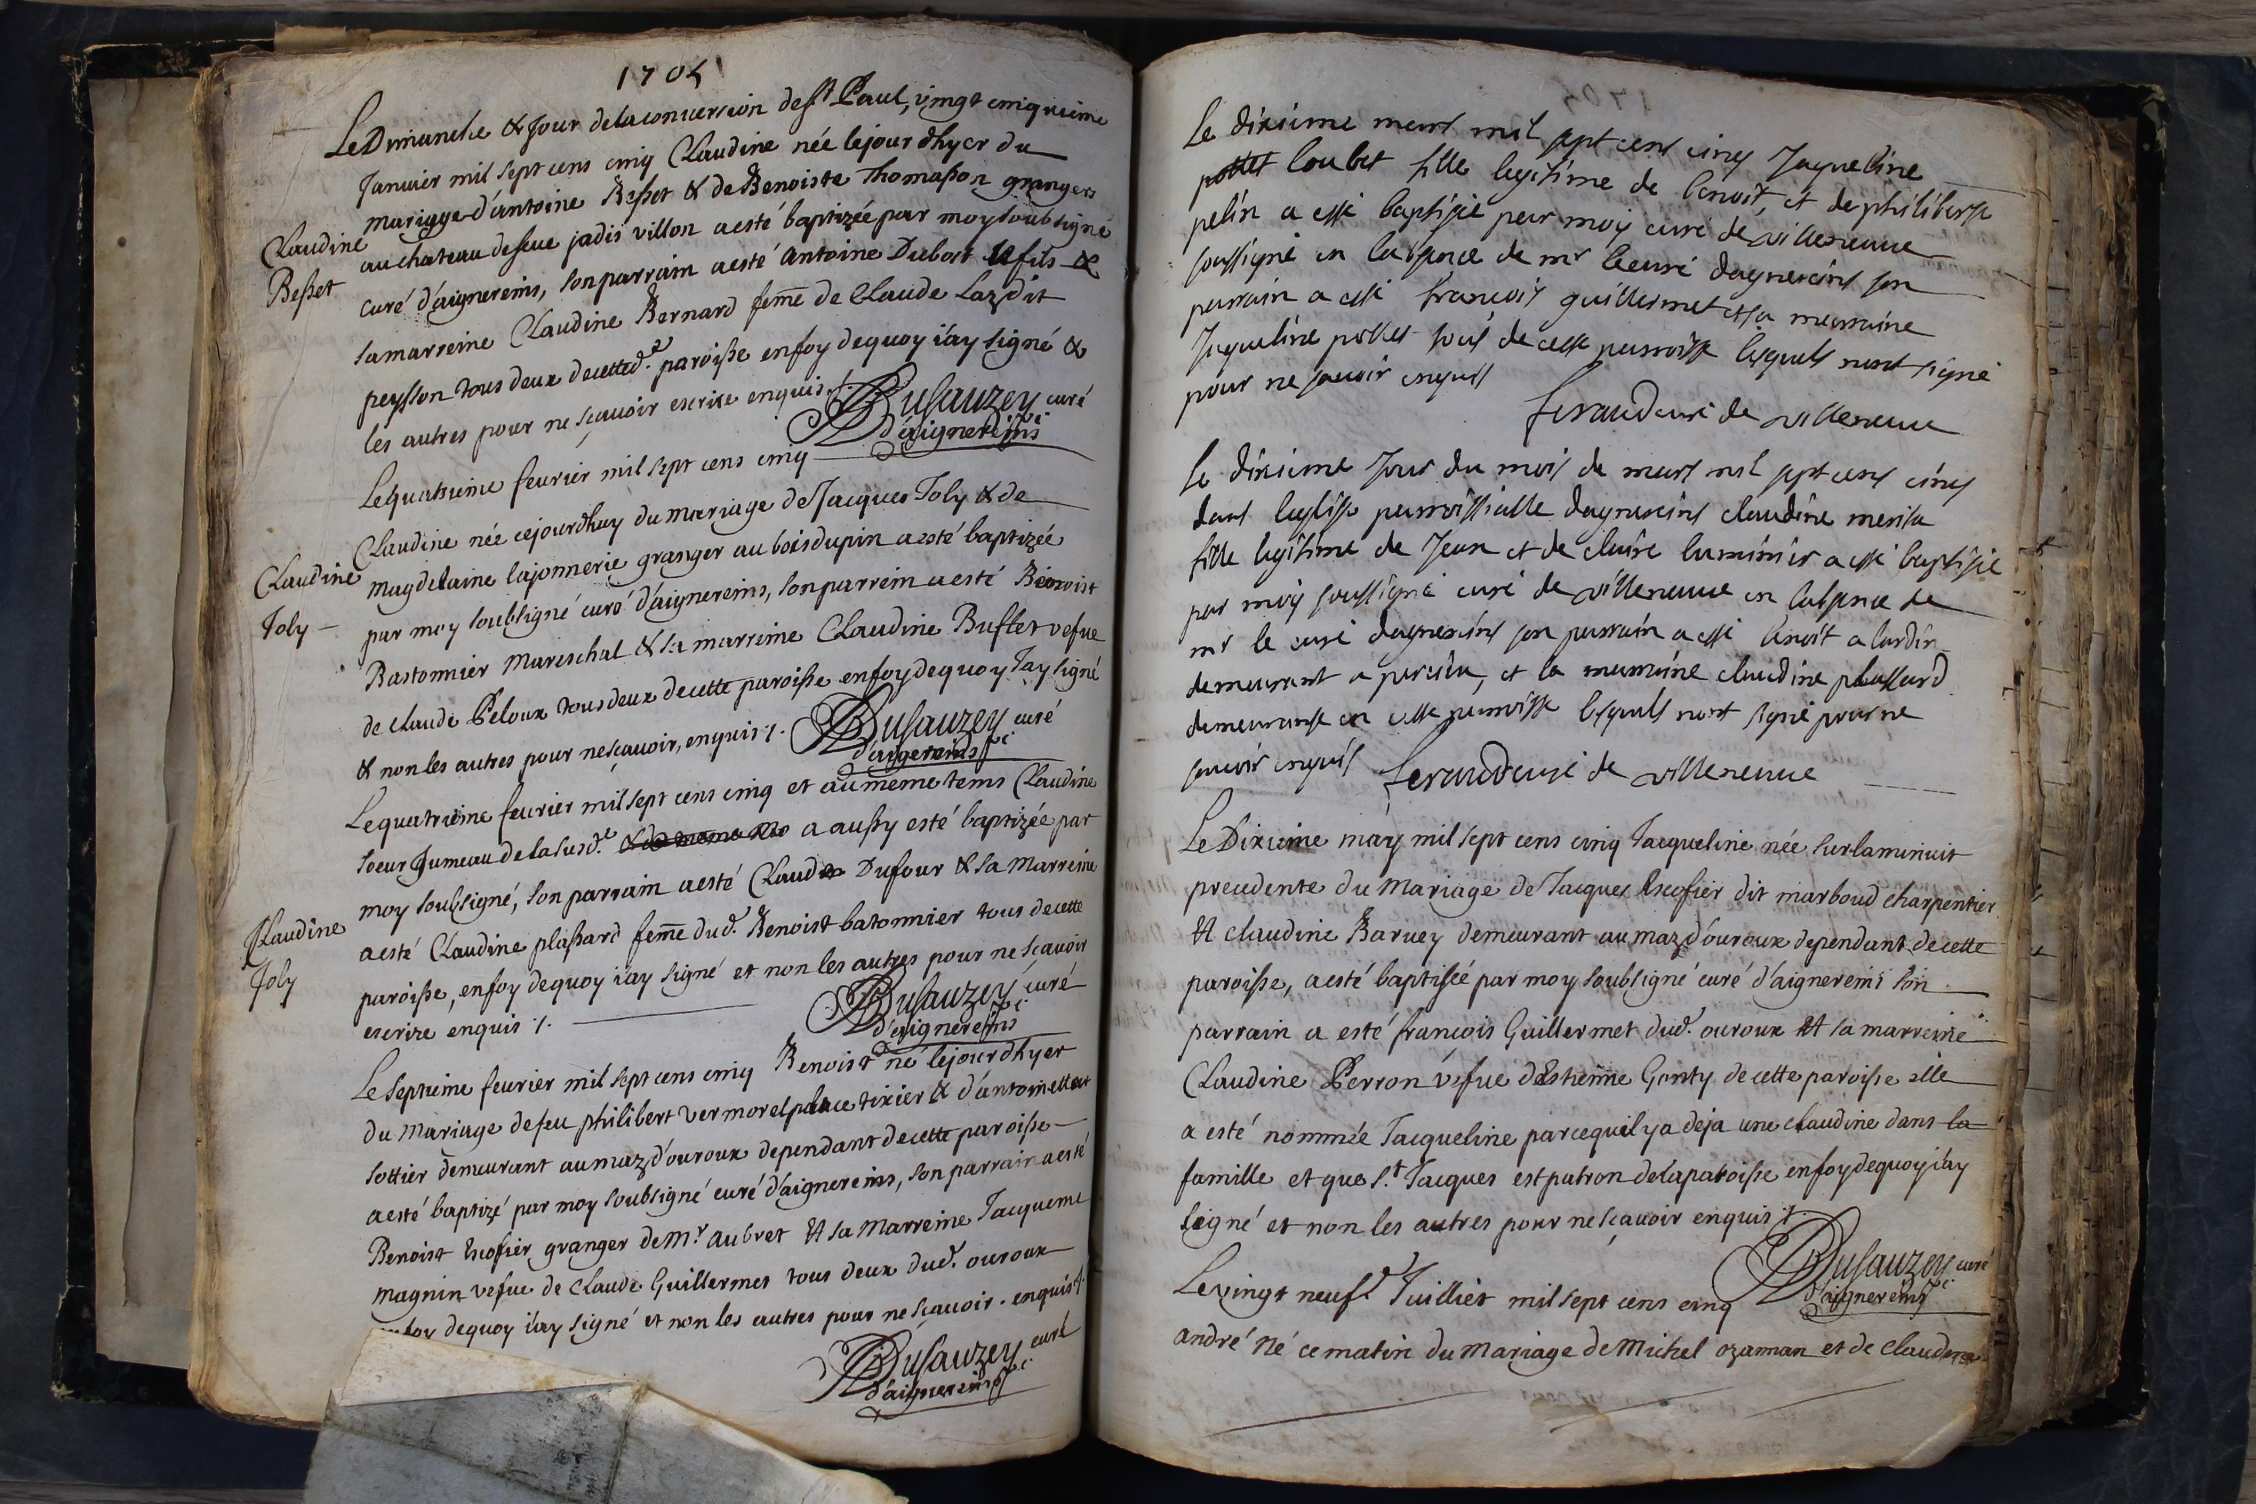 1705
Le Dimanche & Jour de la conversion de st Paul, vingt cinquieme
Janvier mil sept cens cinq Claudine née le jour dhyer du
mariage d'antoine Besset & de Benoiste Thomasson grangers
au chateau de seue jadis villon a esté baptizée par moy soubsigné
curé d'aignereins, son parrain a esté Antoine Dubost fils &
sa marreine Claudine Bernard feme de Claude Lazdit
peysson tous deux de cette d.e paroisse en foy de quoy i'ay signé &
les autres pour ne sçavoir escrire enquis
Dusauzey curé
d'aignereins
Claudine
Besset
Le quatrieme fevrier mil sept cens cinq
Claudine née cejourdhuy du mariage de Jacques Joly & de
magdelaine lajonnerie granger au bois dupin a esté baptizée
par moy soubsigné curé d'aignereins, son parrein a esté Benoist
Bastonnier mareschal & sa marrine Claudine Buffet vefue
de claude Peloux tous deux de cette paroisse en foy de quoy J'ay signé
& non les autres pour ne scavoir, enquis /.
Dusauzey curé
d'aignereins
Claudine
Joly
Le quatrieme fevrier mil sept cens cinq et au meme tems Claudine
soeur Jumeau de la susd.e a aussy esté baptizée par
moy soubsigné, son parrain a esté Claude Dufour & sa Marreine
a esté Claudine plassard feme dud. Benoist batonnier tous de cette
paroisse, en foy de quoy i'ay signé et non les autres pour ne scavoir
escrire enquis /.
Dusauzey curé
d'aignereins
Claudine
Joly
Le septieme fevrier mil sept cens cinq Benoist né le jour dhyer
du Mariage de feu philibert vermorel place tixier & d'antoinette
sottier demeurant au maz d'ouroux dependant de cette paroisse
a esté baptizé par moy soubsigné curé d'aignereins, son parrain a esté
Benoist Escofier granger de Mr. aubret Et sa Marreine Jacqueme
magnin vefue de Claude Guillermet tous deux dud. ouroux
foy dequoy i'ay signé et non les autres pour ne scavoir. enquis /.
Dusauzey curé
d'aignereins
le dixieme mars mil sept cens cinq Jaqueline
loubet fille legitime de benoit, et de philiberte
pelin a esté baptisée par moy curé de villeneuve
soussigné en labsence de mr le curé daignereins son
parrain a esté françois guillermet et sa marraine
Jaqueline pollet tous de cette parroisse lesquels nont signé
pour ne scavoir enquis
feraud curé de villeneuve
le dixieme Jour du mois de mars mil sept cens cinq
dans leglise parroissialle daignereins claudine merita
fille legitime de Jean et de claire luminier a esté baptisée
par moy soussigné curé de villeneuve en labsence de
mr le curé daignereins son parrain a esté benoit alardin
demeurant a parcieu, et la marraine claudine plassard
demeurante en cette parroisse lesquels nont signé pour ne
scavoir enquis feraud curé de villeneuve
Le Dixieme may mil sept cens cinq Jacqueline née sur la minuit
precedente du Mariage de Jacques Escofier dit marboud charpentier
Et claudine Barvey demeurant au maz d'ouroux dependant de cette
paroisse, a esté baptisée par moy soubsigné curé d'aignereins son
parrain a esté francois Guillermet dud. ouroux Et sa marreine
Claudine Perron vefue d'Estienne Gonty de cette paroisse elle
a esté nommée Jacqueline parcequil y a deja une claudine dans la
famille et que s.t Jacques est patron de la paroisse en foy dequoy i'ay
signé et non les autres pour ne sçavoir enquis /.
Dusauzey curé
d'aignereins
Le vingt neuf Juilliet mil sept cens cinq
andré né ce matin du Mariage de Michel ozannan et de claudine